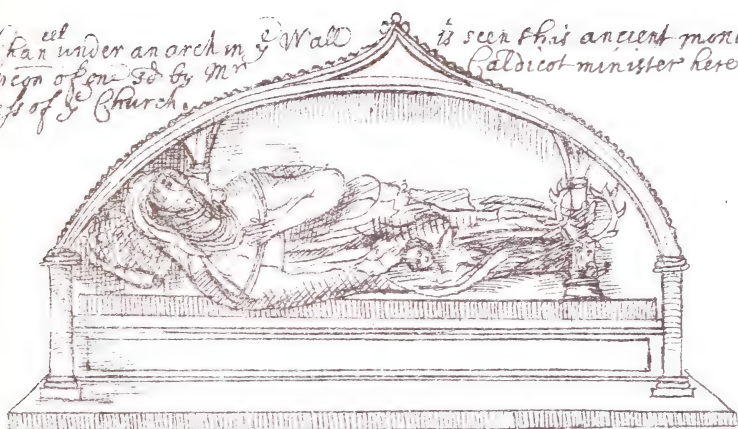 eet
han under an arch in yͤ Wall is seen this ancient monu
by Mr Caldicot minister here
ess of yͤ Church.